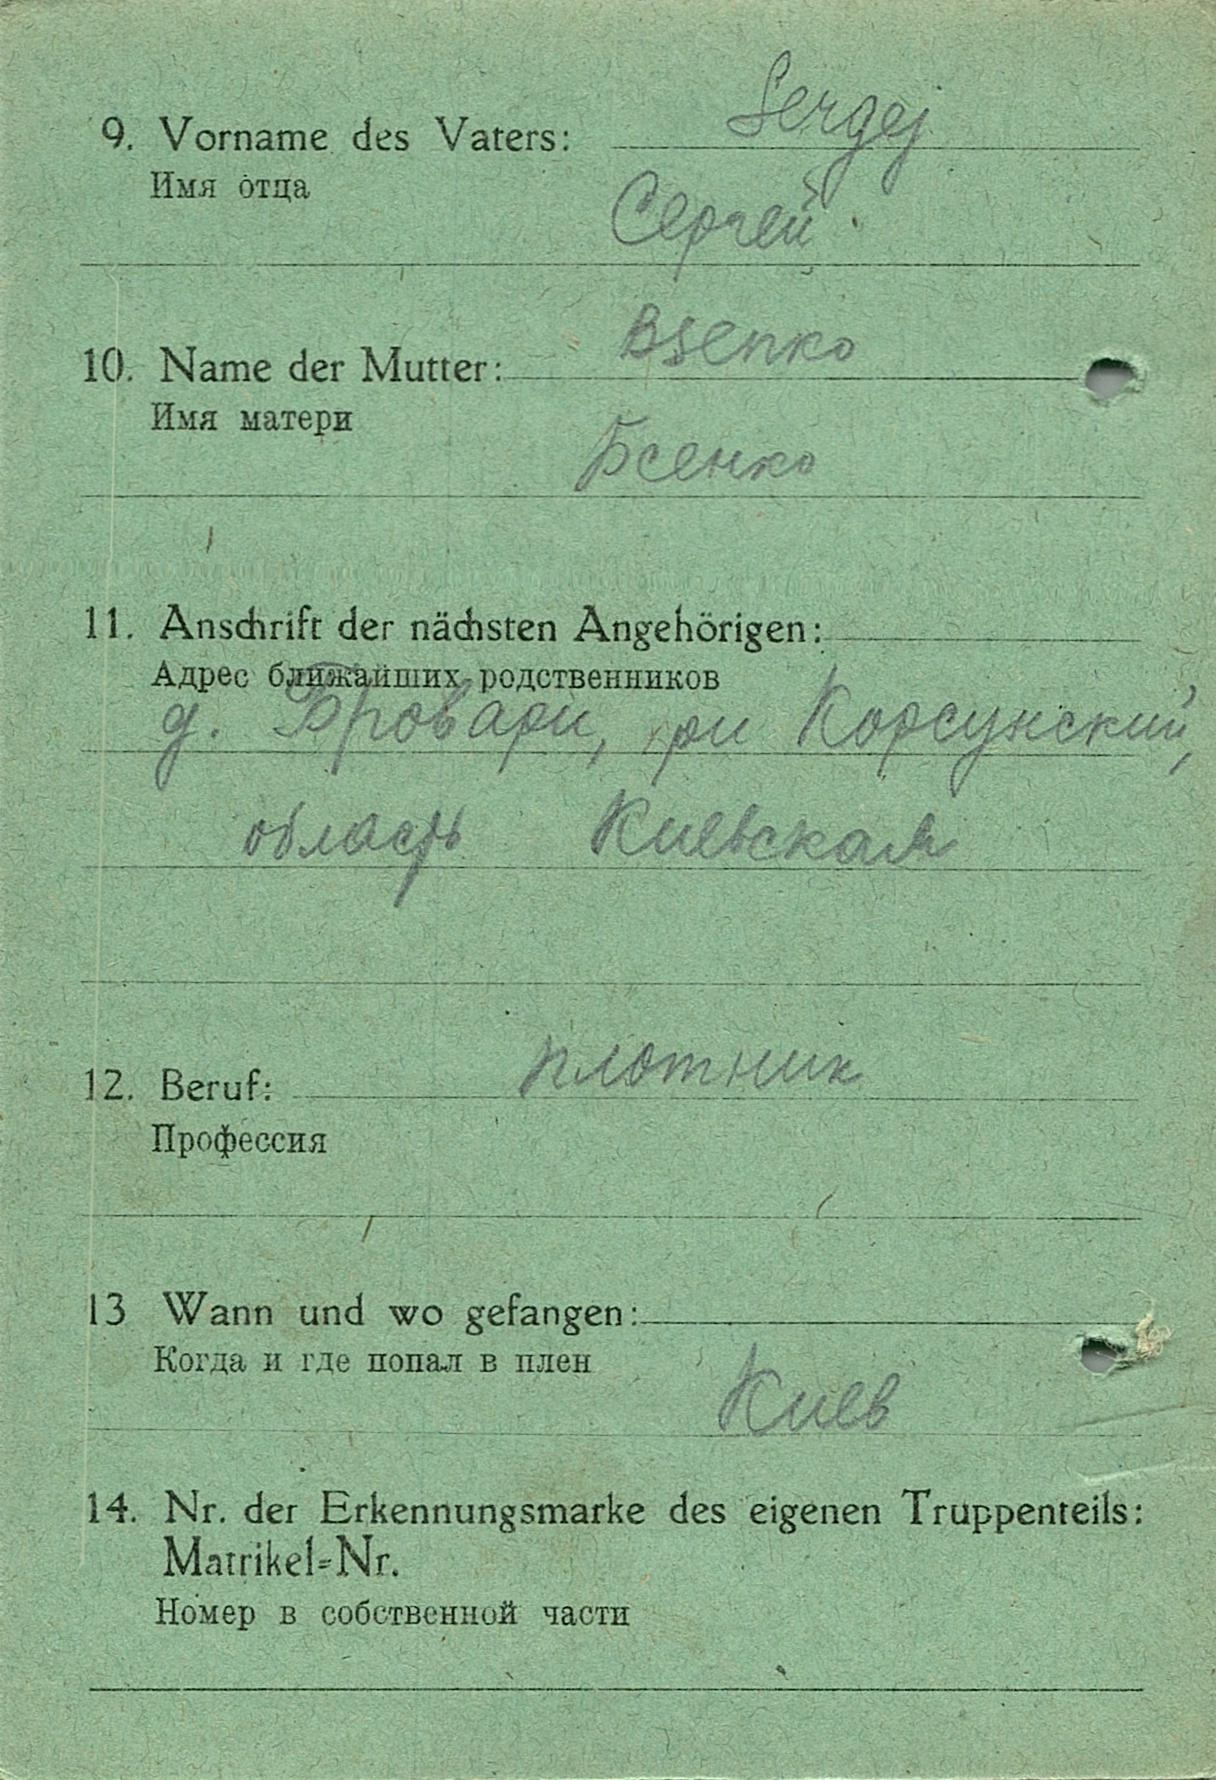 9. Vorname des Vaters: Sergej
Имя отца
Сергей
10. Name der Mutter: Bsenko
Имя матери
Бсенко
11. Anschrift der nächsten Angehörigen:
Адрес ближайших родственников
д. Бровари, рн Корсунский,
область Киевская
12. Beruf: плотник
Профессия
13 Wann und wo gefangen:
Когда и где попал в плен
Киев
14. Nr. der Erkennungsmarke des eigenen Truppenteils:
Matrikel=Nr.
Номер в собственной части